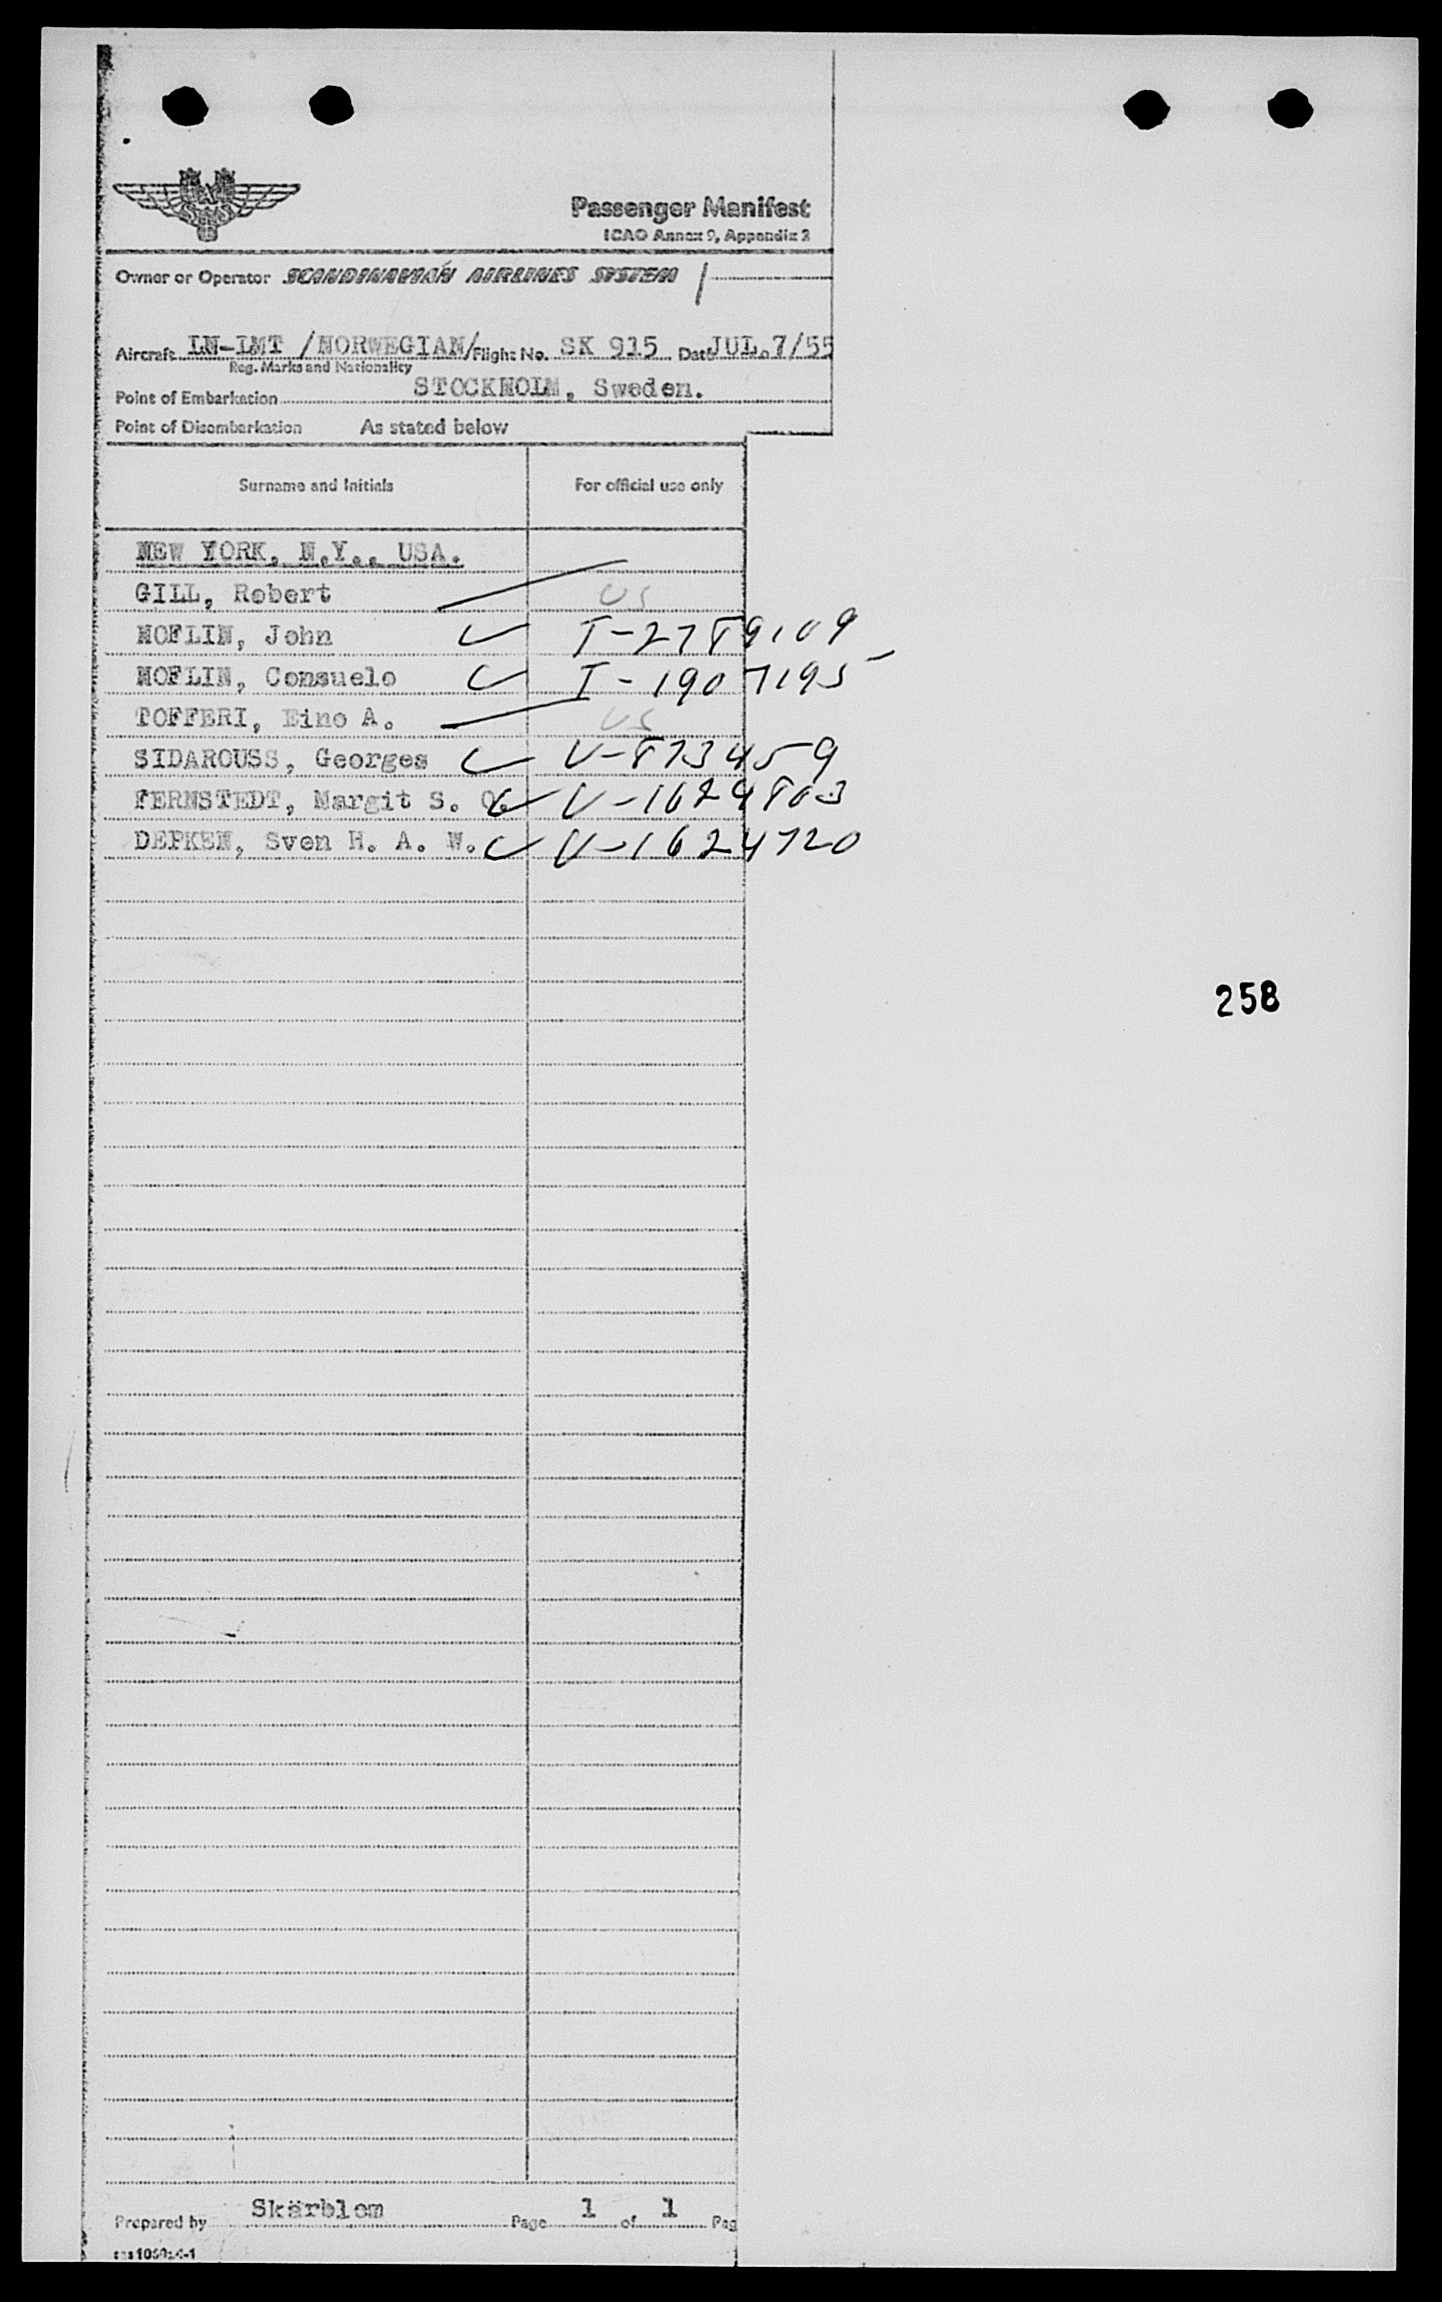 SAS
Passenger Manifest
ICAO Annex 9, Appendix 2
Owner or Operator SCANDINAVIAN AIRLINES SYSTEM
Aircraft LN-LMT /NORWEGIAN/ Flight No. SK 915 Date JUL.7/55
Reg. Marks and Nationality
Point of Embarkation STOCKHOLM, Sweden.
Point of Disembarkation As stated below
Surname and Initials For official use only
NEW YORK, N.Y., USA.
GILL, Robert US
NOFLIN, John I-2789109
NOFLIN, Consuelo I-1907195
TOFFERI, Eino A. US
SIDAROUSS, Georges V-873459
FERNSTEDT, Margit S. O. V-1624803
DEPKEN, Sven H. A. W. V-1624720
258
Prepared by Skärblom Page 1 of 1 Pag